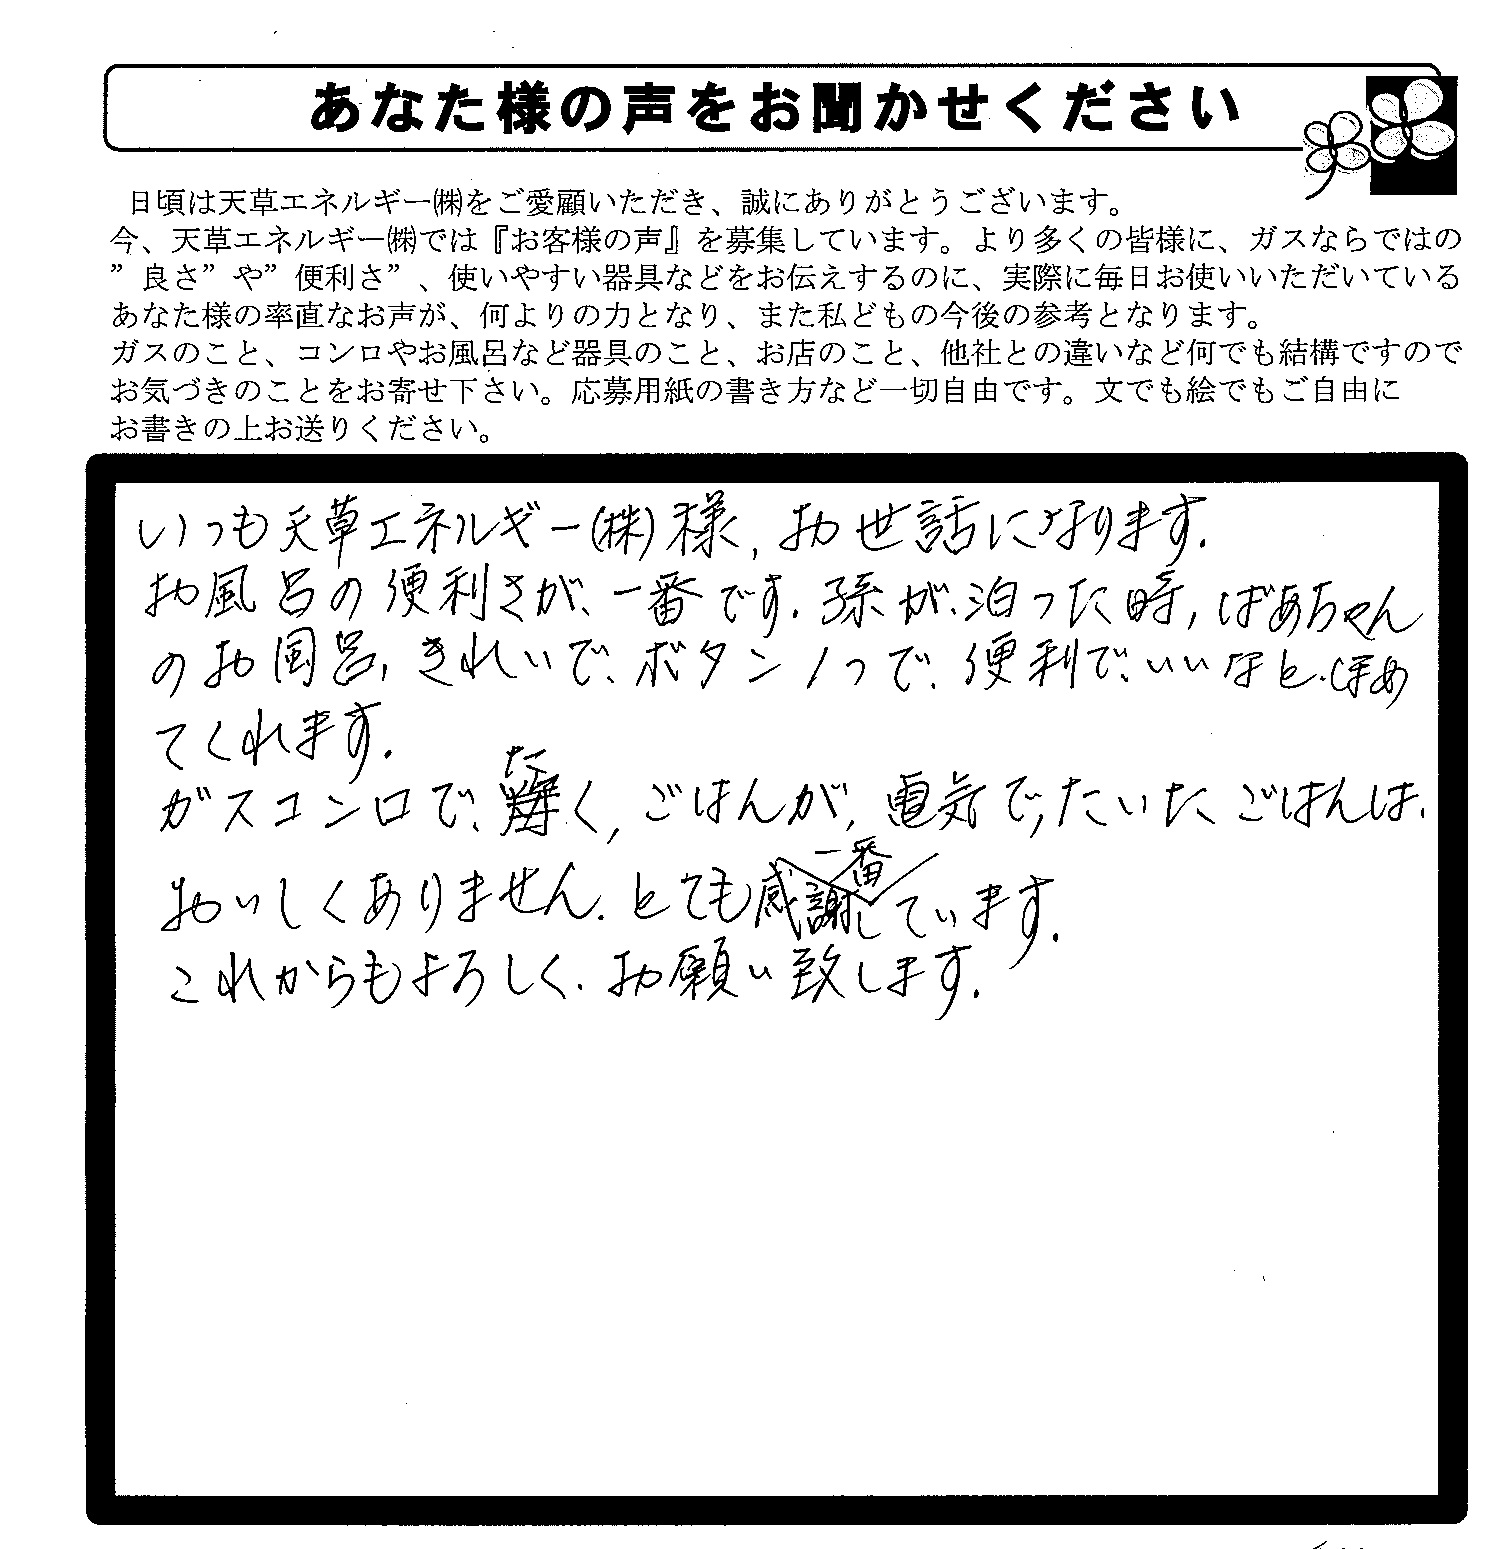 あなた様の声をお聞かせください
日頃は天草エネルギー㈱をご愛顧いただき、誠にありがとうございます。
今、天草エネルギー㈱では『お客様の声』を募集しています。より多くの皆様に、ガスならではの
”良さ”や”便利さ”、使いやすい器具などをお伝えするのに、実際に毎日お使いいただいている
あなた様の率直なお声が、何よりの力となり、また私どもの今後の参考となります。
ガスのこと、コンロやお風呂など器具のこと、お店のこと、他社との違いなど何でも結構ですので
お気づきのことをお寄せ下さい。応募用紙の書き方など一切自由です。文でも絵でもご自由に
お書きの上お送りください。
いつも天草エネルギー(株)様,お世話になります.
お風呂の便利さが、一番です.孫が、泊った時,ばあちゃん
のお風呂,きれいで、ボタン1つで、便利で、いいなと、ほめ
てくれます.
ガスコンロで、たく,ごはんが,一番 電気で,たいたごはんは、
おいしくありません.とても感謝しています.
これからもよろしく.お願い致します.